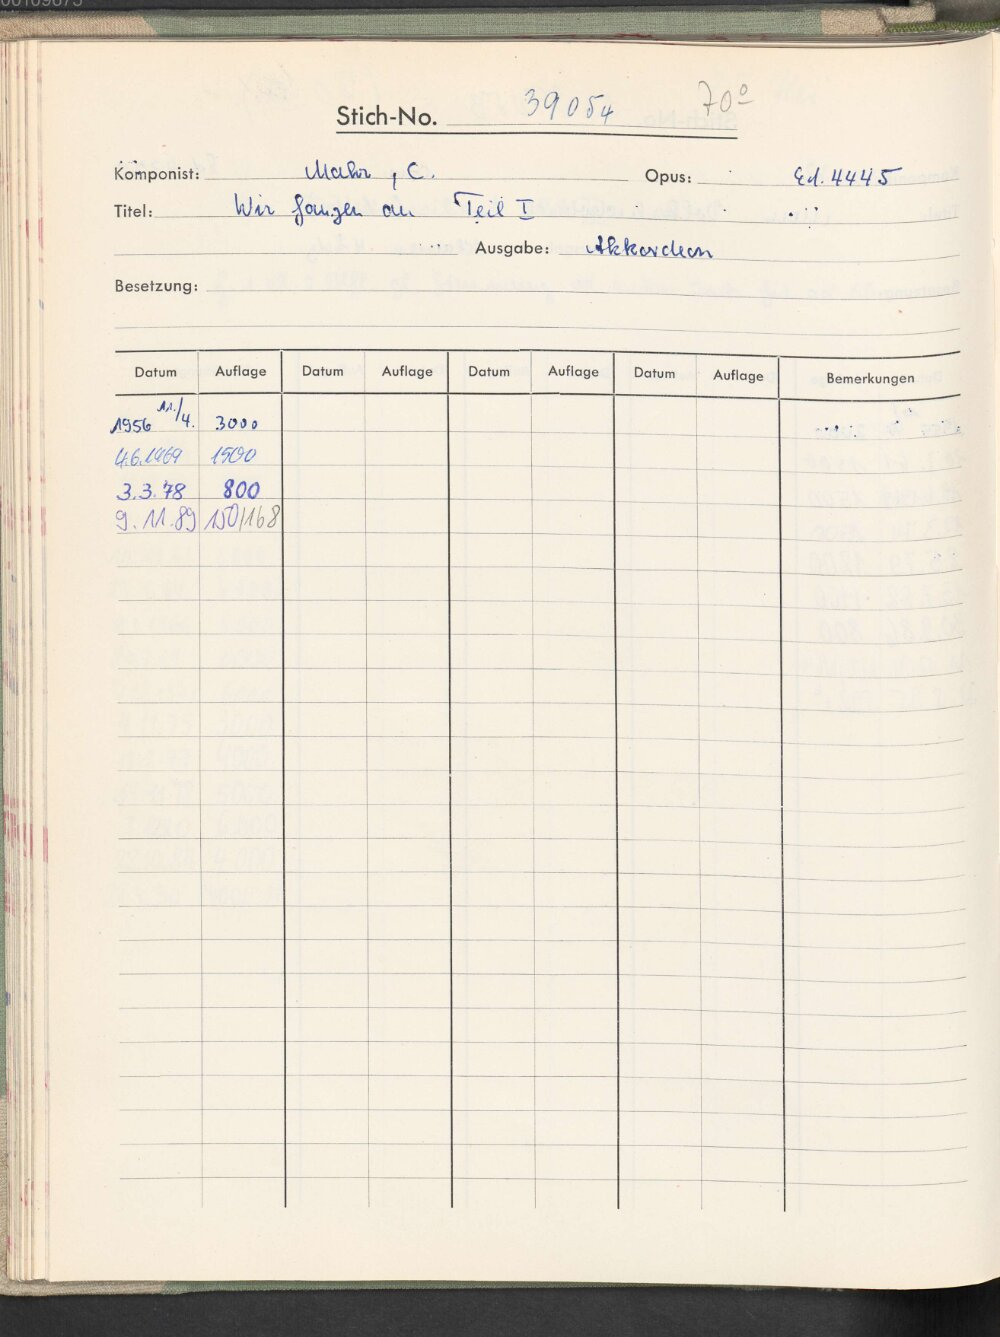 Stich-No. 39054 70°
Komponist: Mahr, C. Opus: Ed. 4445
Titel: Wir fangen an Teil I
Ausgabe: Akkordeon
Besetzung:
Datum Auflage Datum Auflage Datum Auflage Datum Auflage Bemerkungen
1956 11./4. 3000
4.6.1969 1500
3.3.78 800
9.11.89 150/168